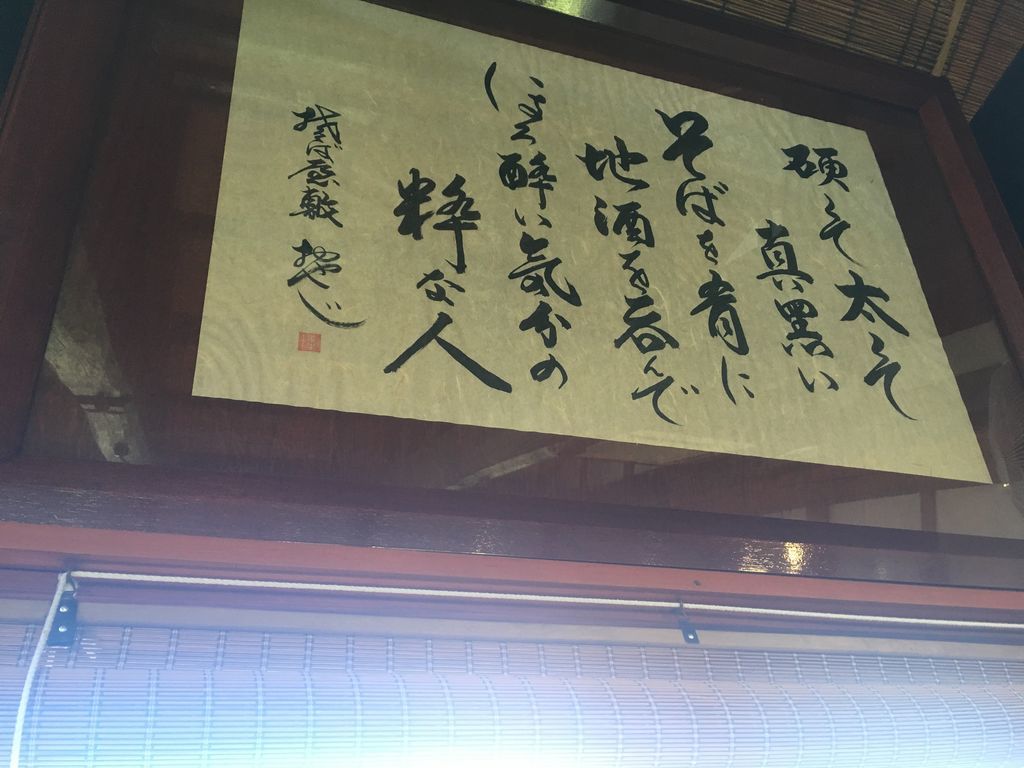 硬くて太くて
真黒い
そばを肴に
地酒を呑んで
ほろ酔い気分の
粋な人
おやじ